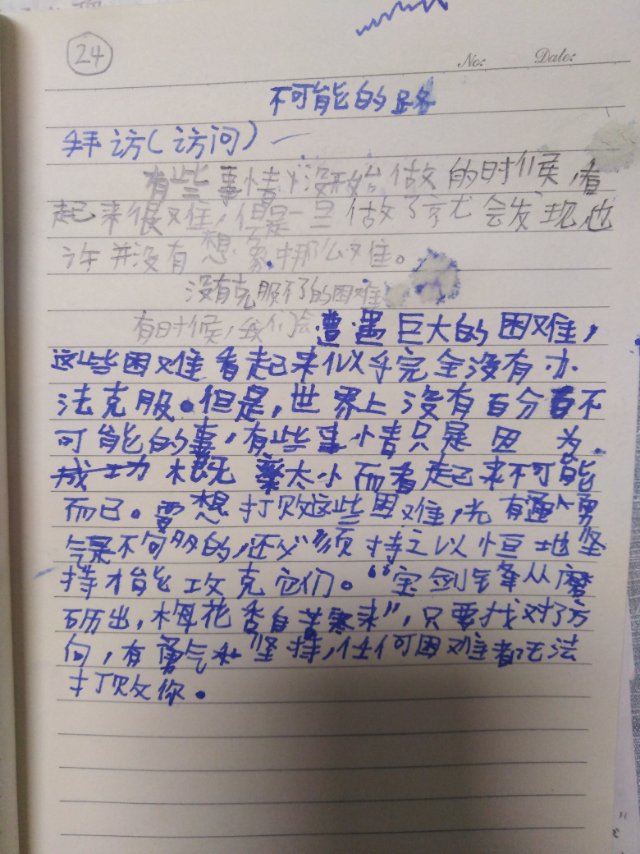 24
No: Date:
不可能的路
拜访(访问)一
有些事情没开始做的时候,看
起来很难,但是一旦做了就会发现也
许并没有想象那么难。
没有克服不了的困难
有时候,我们会遭遇巨大的困难,
这些困难看起来似乎完全没有办
法克服。但是,世界上没有百分百不
可能的事,有些事情只是因为
成功概率太小而看起来不可能
而已。要想打败这些困难,光有勇
气是不够的,还必须持之以恒地坚
持才能攻克它们。“宝剑锋从磨
砺出,梅花香自苦寒来”,只要找对了方
向,有勇气和坚持,任何困难都无法
打败你。